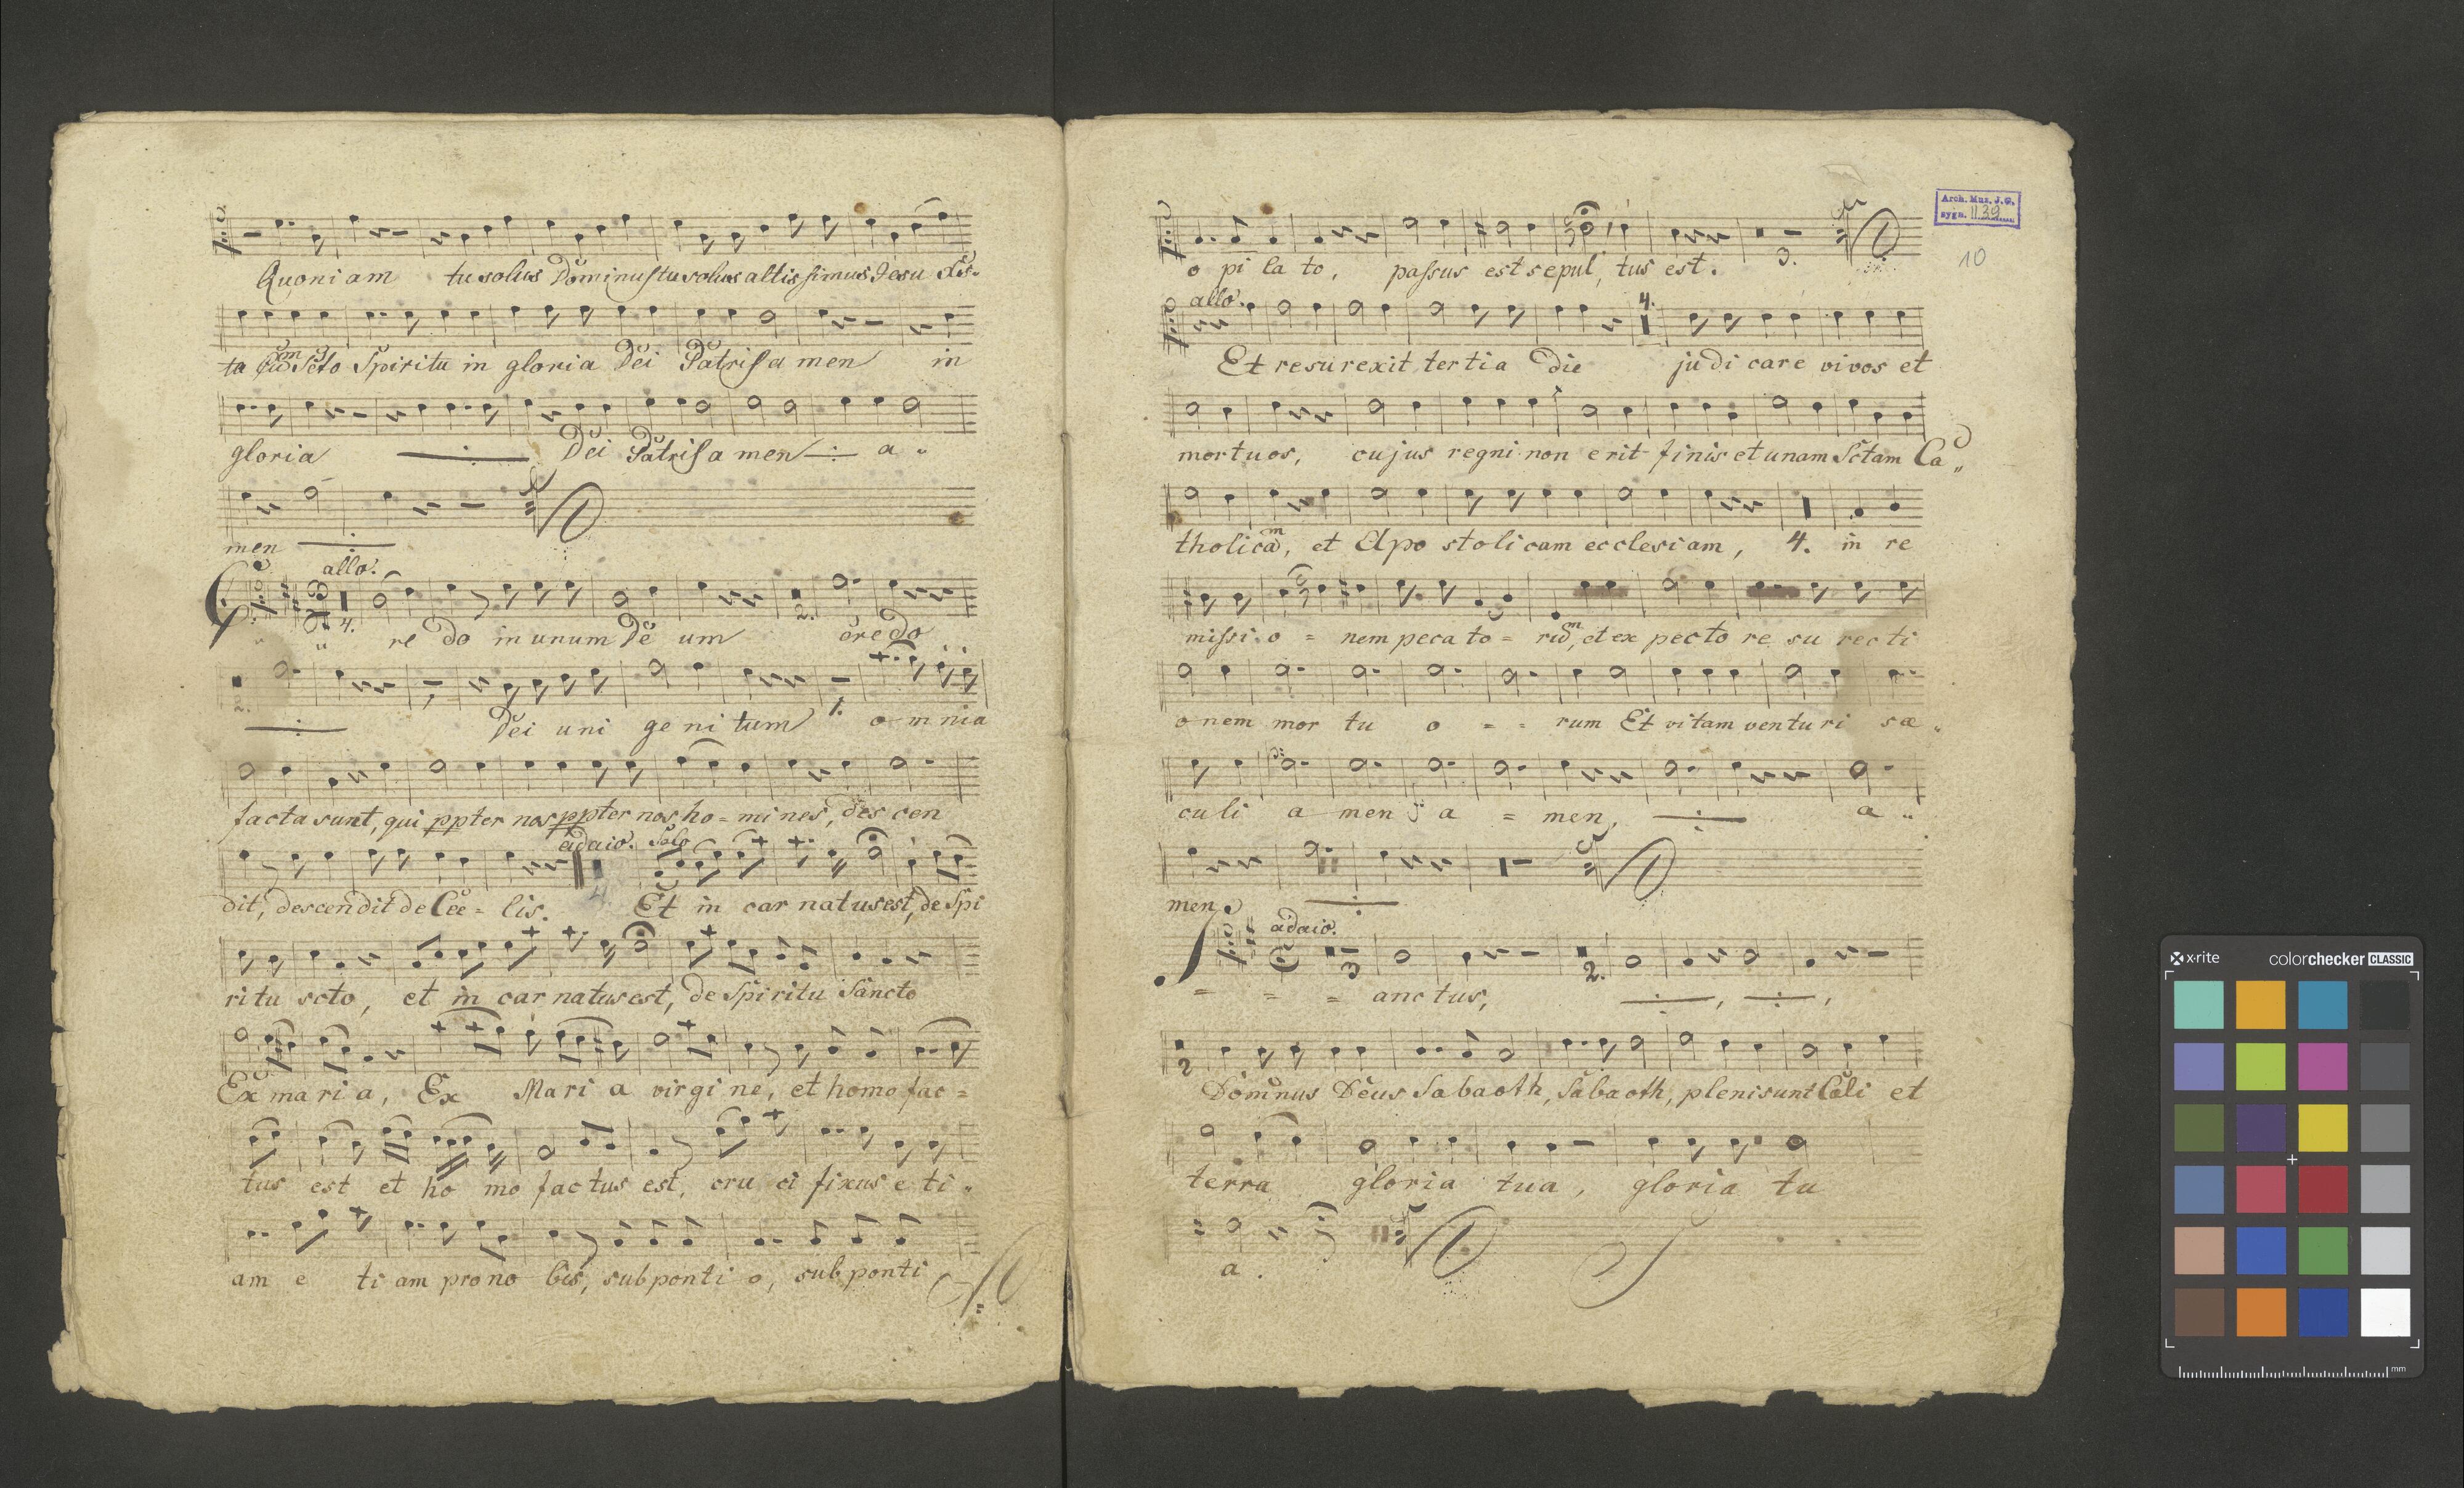 Quoniam tu solus Dominus tu solus altissimus Jesu
ta Scto Spiritu in gloria Dei Patris a men in
gloria Dei Patris a men a
men
allo.
4. 2.
Credo in unum De um credo
2. 1.
Dei uni ge ni tum omnia
facta sunt, qui ppter nos ppter nos ho = mi nes, des cen
adaio. Solo
dit, descendit de Cœ = lis. 4. Et in car natus est, de Spi
ritu scto, et in car natus est, de Spi ritu Sancto
Ex ma ri a, Ex Mari a virgi ne, et homo fac =
tus est et ho mo fac tus est, cru ci fixus e ti
am e ti am pro no bis, sub ponti o, sub ponti
Arch. Muz. J. G.
sygn. 1139
10
3.
o pi la to, passus est sepul, tus est.
allo. 4.
Et resurexit tertia die judi care vivos et
mortuos, cujus regni non erit finis et unam Sctam Ca
tholicam, et Apo stolicam ecclesiam, 4. in re
missi o = nem peca to = rum, et ex pecto re su recti
o nem mor tu o = = rum Et vitam venturi sæ
culi a men a = men, a
men
adaio.
3 2.
S = = = anctus,
2
Dominus Deus Sabaoth, Sabaoth, pleni sunt Cœli et
terra gloria tua, gloria tu
a.
x-rite colorchecker CLASSIC
mm